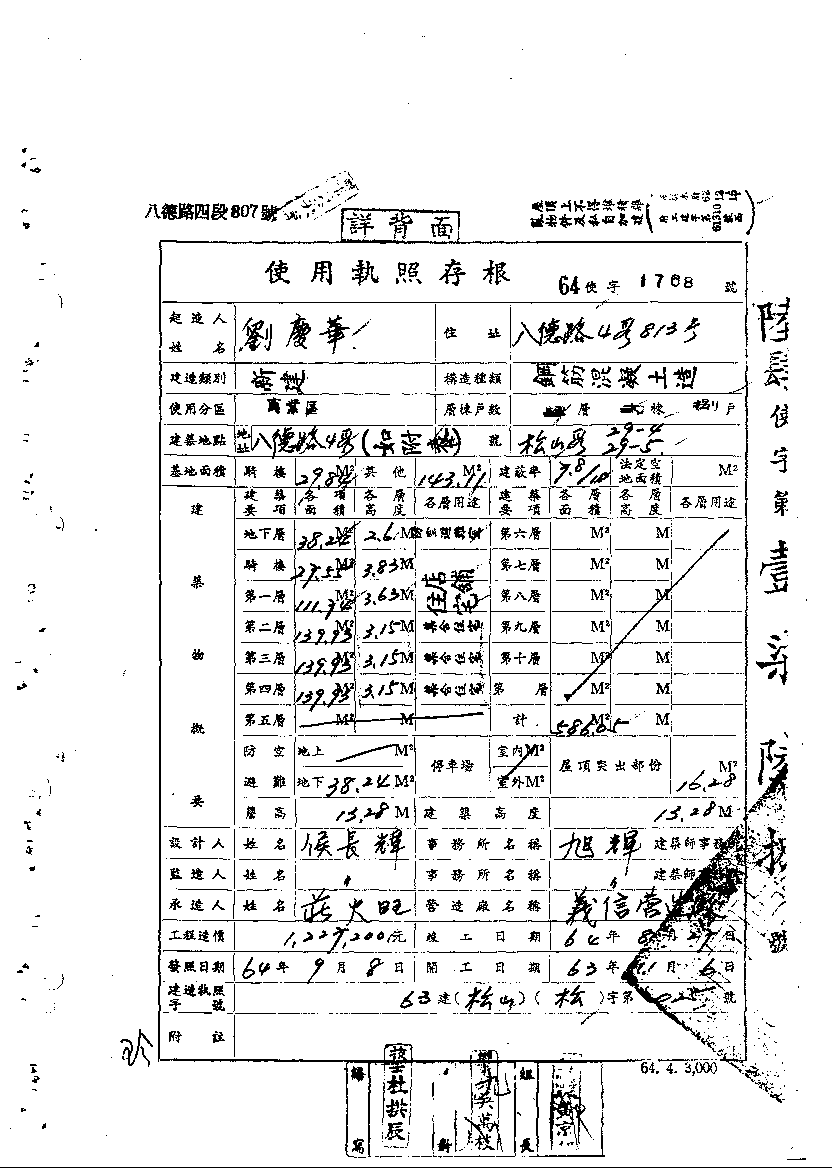 八德路四段807號
屋頂上不得堆積雜
亂物件及私自加建
詳背面
使用執照存根 64使字1768號
起造人姓名 劉慶華 住址 八德路4段813号
建造類別 新建 構造種類 鋼筋混凝土造
使用分區 商業區 層棟戶數 層 棟 戶
建築地點 地址 八德路4段 號 松山段 29-4 29-5
基地面積 騎樓 29.84 M² 其他 143.11 M² 建蔽率 7.8/10 法定空地面積 M²
建築物概要 建築要項 各項面積 各層高度 各層用途 建築要項 各層面積 各層高度 各層用途
地下層 38.24 M² 2.6 M 第六層 M² M
騎樓 27.55 M² 3.83 M 第七層 M² M
第一層 111.74 M² 3.63 M 店鋪住宅 第八層 M² M
第二層 139.93 M² 3.15 M 集合住宅 第九層 M² M
第三層 139.93 M² 3.15 M 集合住宅 第十層 M² M
第四層 139.93 M² 3.15 M 集合住宅 第 層 M² M
第五層 M² M 計 586.05 M² M
防空避難 地上 M² 停車場 室內 M² 屋頂突出部份 M²
地下 38.24 M² 室外 M² 16.28
簷高 13.28 M 建築高度 13.28 M
設計人 姓名 侯長輝 事務所名稱 旭輝 建築師事務
監造人 姓名 〃 事務所名稱 〃 建築師
承造人 姓名 莊火旺 營造廠名稱 義信營造
工程造價 1,227,200元 竣工日期 64年8月27日
發照日期 64年9月8日 開工日期 63年11月6日
建造執照字號 63建(松山)(松)字第 號
附註
64. 4. 3,000
繕寫 杜拱辰 吳萬枝 組長
陸肆使字第壹柒陸捌號